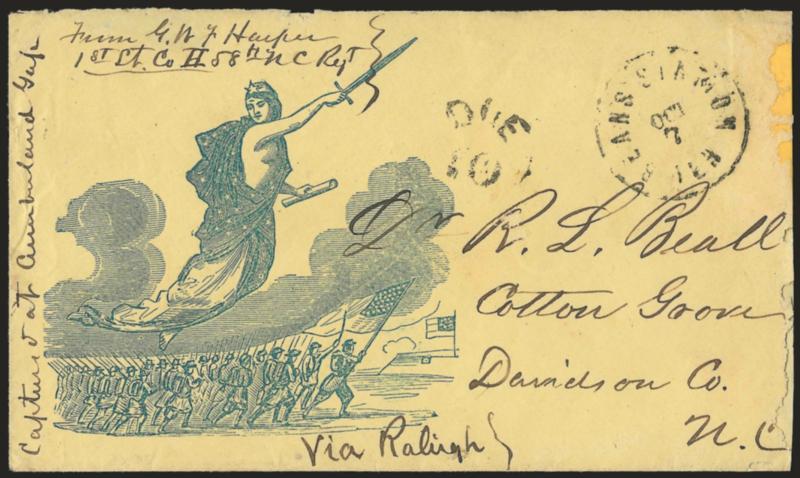 From G. W. F. Harper
1st Lt. Co H 58th N C Regt
Captured at Cumberland Gap
DUE
10
BEANS STATION
OCT
7
Dr R. L. Beall
Cotton Grove
Davidson Co.
N. C
Via Raleigh